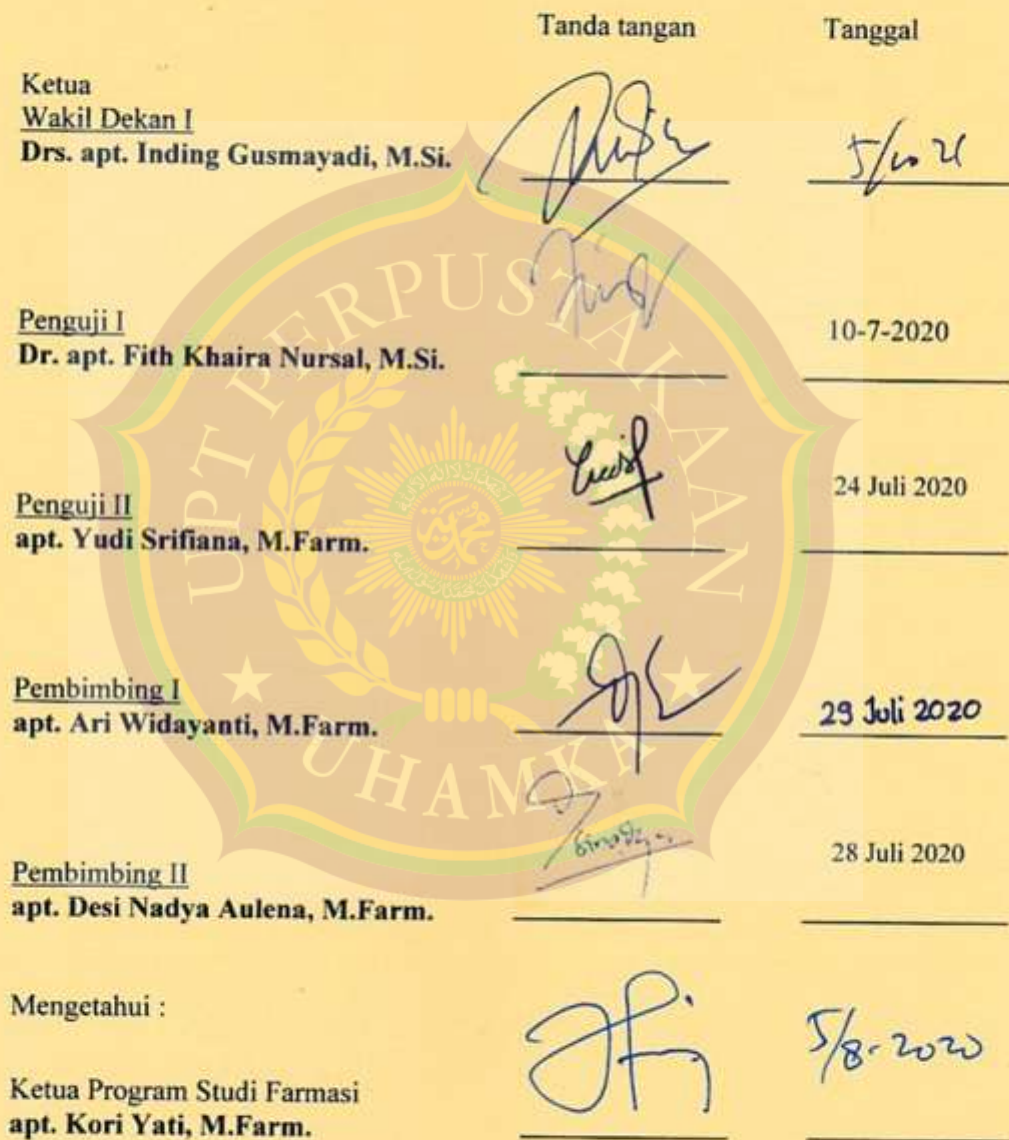 Tanda tangan Tanggal
Ketua
Wakil Dekan I
Drs. apt. Inding Gusmayadi, M.Si.
Penguji I
Dr. apt. Fith Khaira Nursal, M.Si.
10-7-2020
Penguji II
apt. Yudi Srifiana, M.Farm.
24 Juli 2020
Pembimbing I
apt. Ari Widayanti, M.Farm.
29 Juli 2020
Pembimbing II
apt. Desi Nadya Aulena, M.Farm.
28 Juli 2020
Mengetahui :
Ketua Program Studi Farmasi
apt. Kori Yati, M.Farm.
5/8-2020
UPT PERPUSTAKAAN
UHAMKA